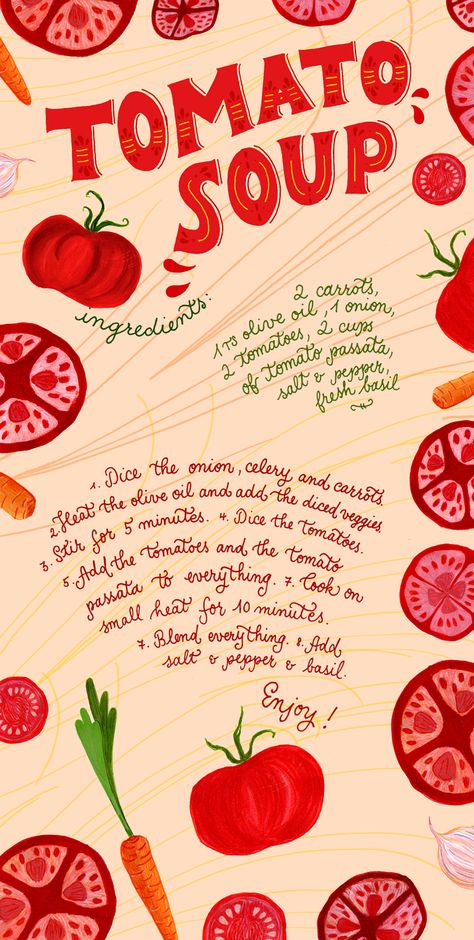 TOMATO
SOUP
ingredients:
2 carrots,
1 TS olive oil, 1 onion,
2 tomatoes, 2 cups
of tomato passata,
salt & pepper,
fresh basil
1. Dice the onion, celery and carrots
2. Heat the olive oil and add the diced veggies
3. Stir for 5 minutes. 4. Dice the tomatoes.
5. Add the tomatoes and the tomato
passata to everything. 7. Cook on
small heat for 10 minutes.
7. Blend everything. 8. Add
salt & pepper & basil.
Enjoy!